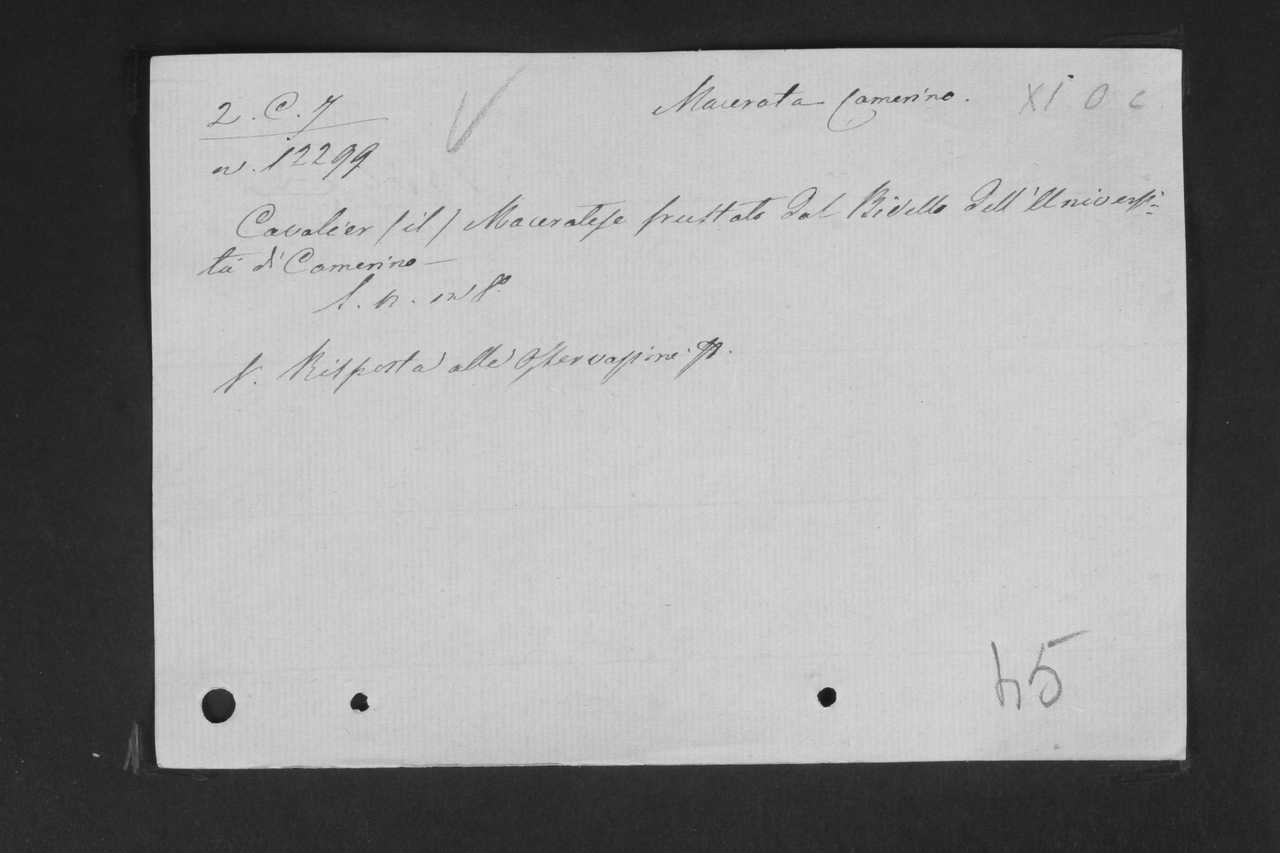 2. C. 7
n. 12299
Macerata Camerino.
XI 0 c
Cavalier (il) Maceratese frustato dal Bidello dell'Universi-
tà di Camerino —
S. n. in 8°
V. Risposta alle Osservazioni
45